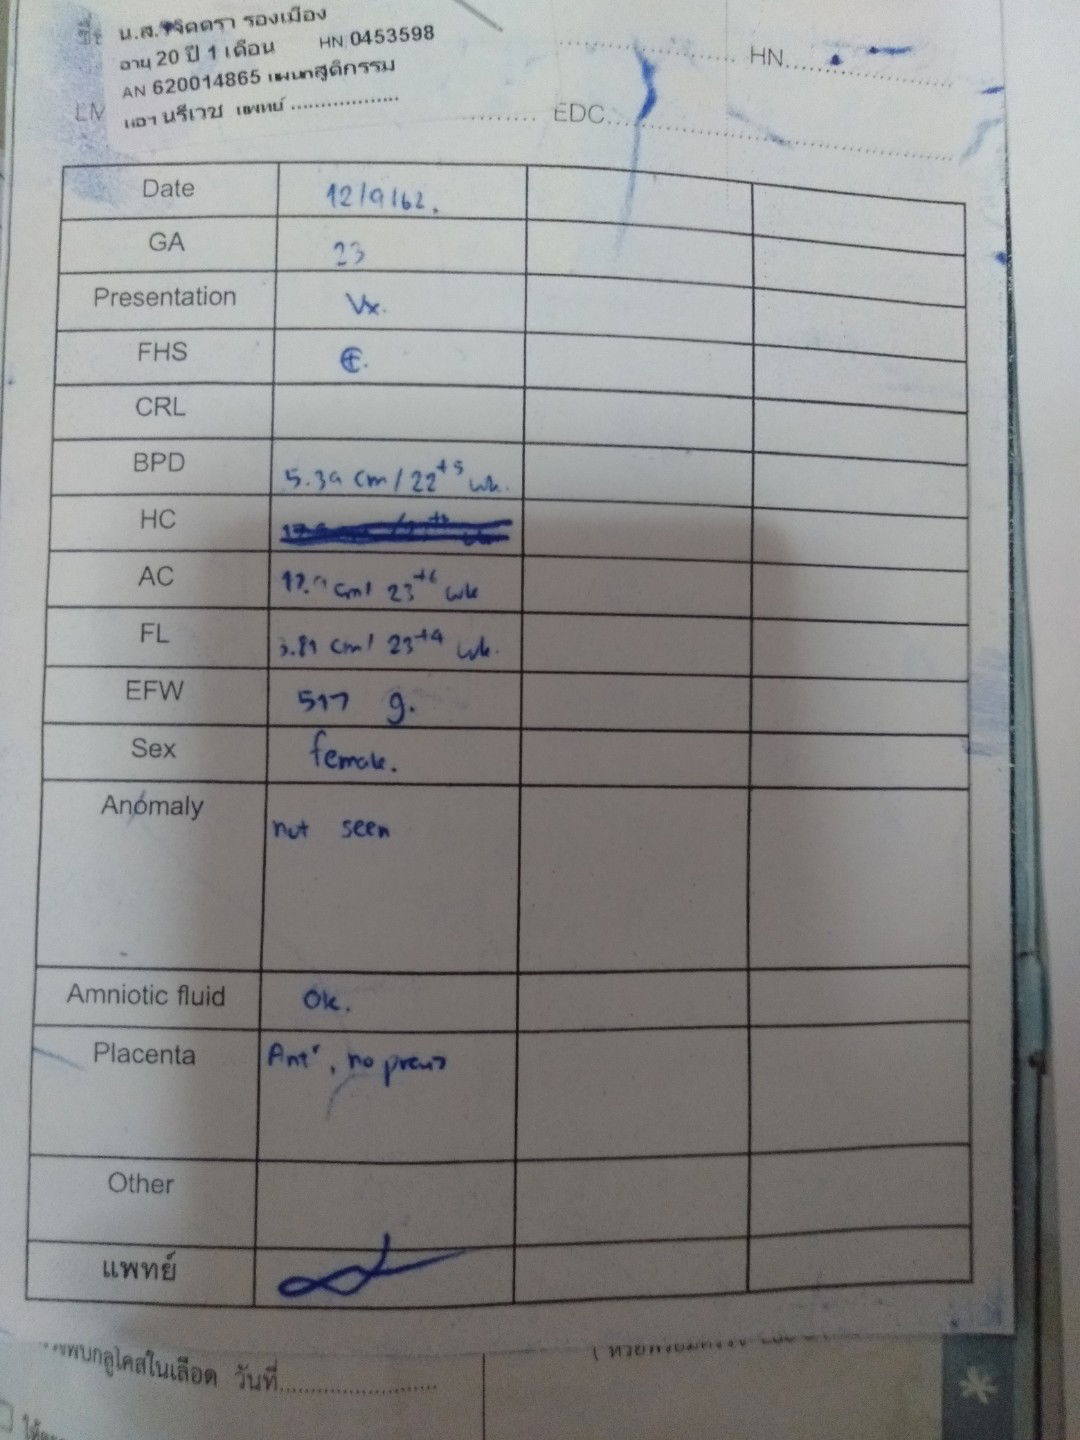 น.ส. จิตตรา รองเมือง
อายุ 20 ปี 1 เดือน HN 0453598
AN 620014865 แผนกสูติกรรม
นรีเวช แพทย์ ..................
HN
LM
EDC
Date 12/9/62.
GA 23
Presentation Vx.
FHS ⊕.
CRL
BPD 5.39 cm / 22+5 wk.
HC
AC 17.9 cm / 23+6 wk
FL 3.89 cm / 23+4 wk.
EFW 517 g.
Sex female.
Anomaly not seen
Amniotic fluid Ok.
Placenta Ant', no
Other
แพทย์
พบกลูโคสในเลือด วันที่